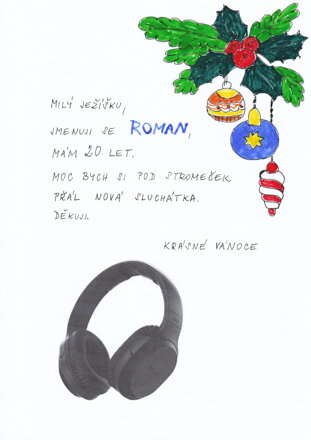 MILÝ JEŽÍŠKU,
JMENUJI SE ROMAN,
MÁM 20 LET.
MOC BYCH SI POD STROMEČEK
PŘÁL NOVÁ SLUCHÁTKA.
DĚKUJI.
KRÁSNÉ VÁNOCE